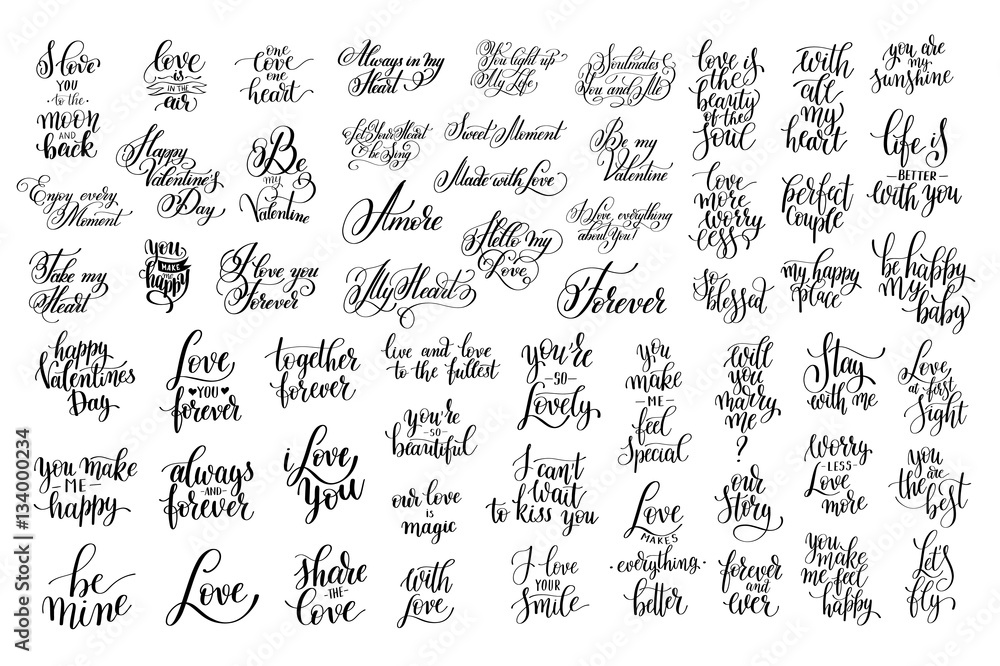 I love
YOU
to the
moon
AND
back
love
IS
IN THE
air
one
love
one
heart
Always in my
Heart
You light up
My Life
Soulmates
You and Me
love is
the
beauty
of the
soul
with
all
my
heart
you are
my
sunshine
Happy
Valentine's
Day
Be
my
Valentine
Let Your Heart
be Sing
Sweet Moment
Be my
Valentine
life is
BETTER
with you
Enjoy every
Moment
Made with Love
Amore
Hello my
Love
I Love everything
about You!
love
more
worry
less
perfect
couple
Take my
Heart
you
MAKE
me
happy
I love you
Forever
My Heart
Forever
so
blessed
my happy
place
be happy
my
baby
happy
Valentines
Day
Love
YOU
forever
together
forever
live and love
to the fullest
you're
SO
Lovely
you
make
ME
feel
special
will
you
marry
me
?
Stay
with me
Love
at first
sight
you make
ME
happy
always
AND
forever
i Love
you
you're
SO
beautiful
our love
is
magic
I can't
wait
to kiss you
Love
MAKES
everything
better
our
Story
worry
LESS
Love
more
you
are
the
best
be
mine
Love
share
THE
love
with
Love
I love
YOUR
Smile
forever
and
ever
you
make
me feel
happy
Let's
fly
Adobe Stock
#134000234